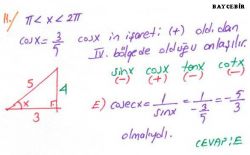 BAYCEBİR
11.) π < x < 2π
cosx = 3/5 cosx in işareti (+) olduğundan
IV. bölgede olduğu anlaşılır.
sinx cosx tanx cotx
(-) (+) (-) (-)
5 4 x 3
E) cosecx = 1/sinx = 1/(-3/5) = -5/3
olmalıydı.
CEVAP: E